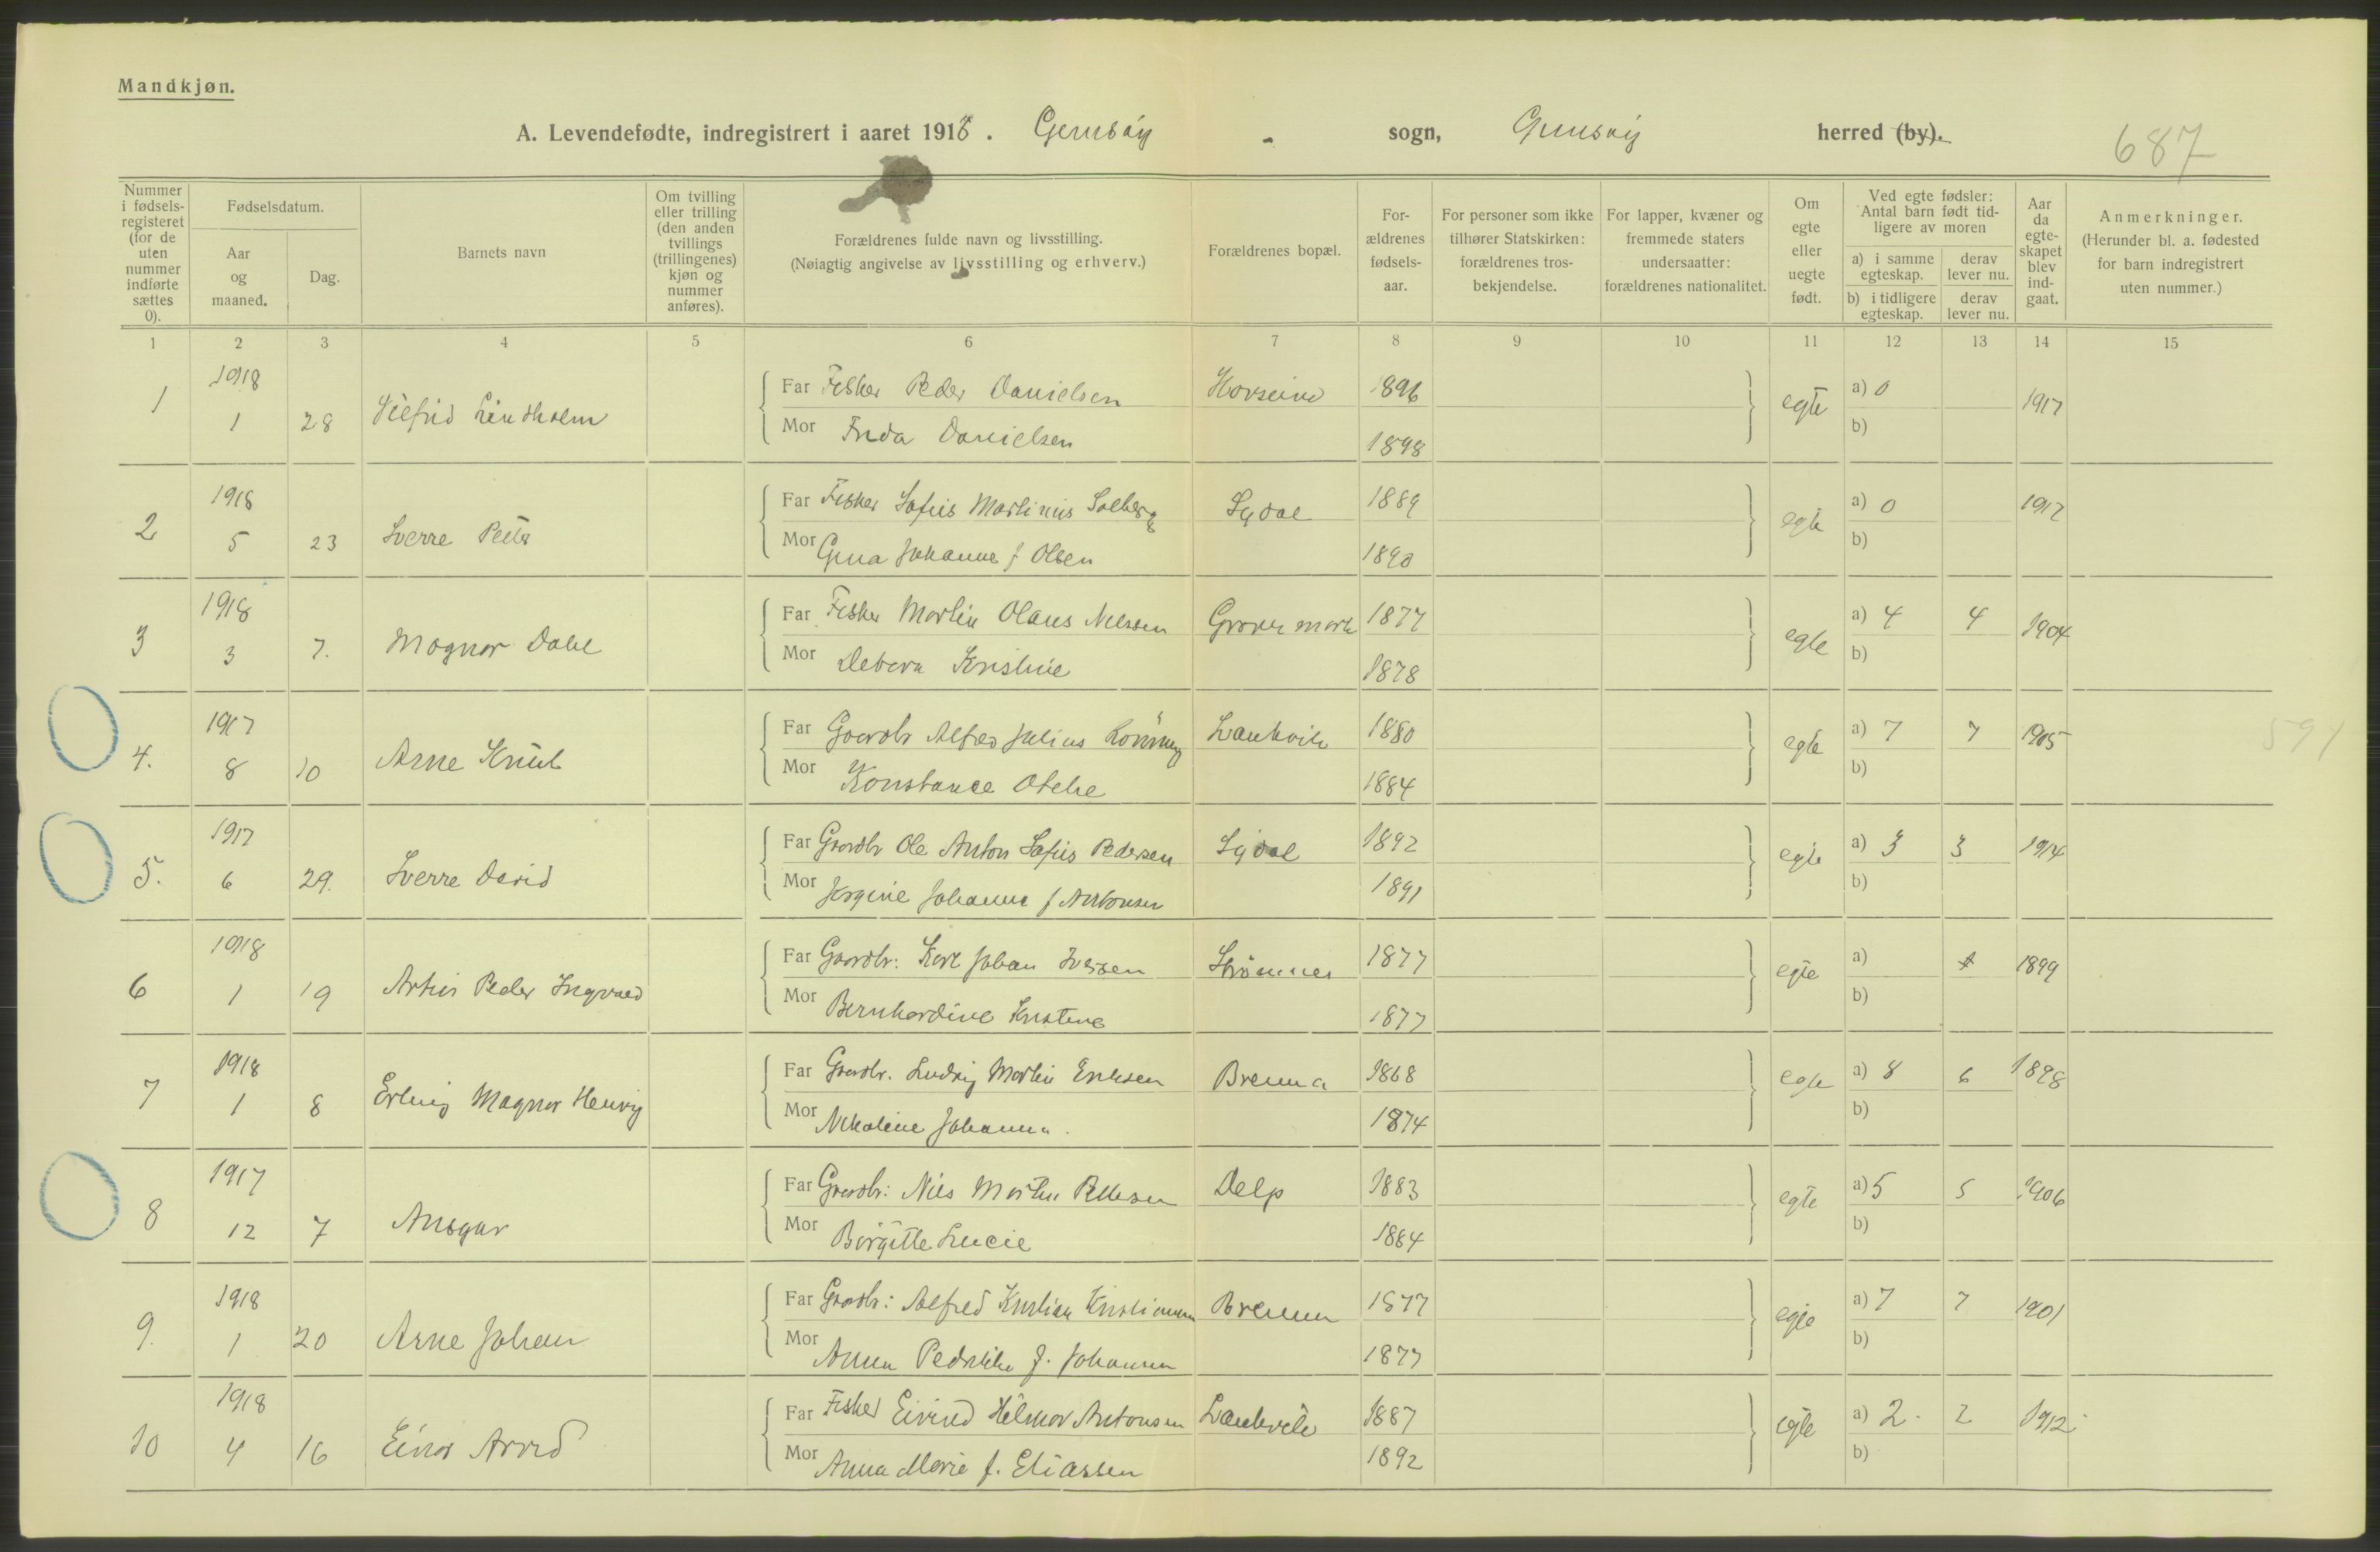 Mandkjøn.
A. Levendefødte, indregistrert i aaret 1918. Gimsøy - sogn, Gimsøy herred (by).
687
Nummer i fødselsregisteret (for de uten nummer indførte sættes 0).
Fødselsdatum.
Aar og maaned.
Dag.
Barnets navn
Om tvilling eller trilling (den anden tvillings (trillingenes) kjøn og nummer anføres).
Forældrenes fulde navn og livsstilling.
(Nøiagtig angivelse av livsstilling og erhverv.)
Forældrenes bopæl.
Forældrenes fødselsaar.
For personer som ikke tilhører Statskirken: forældrenes trosbekjendelse.
For lapper, kvæner og fremmede staters undersaatter: forældrenes nationalitet.
Om egte eller uegte født.
Ved egte fødsler: Antal barn født tidligere av moren
a) i samme egteskap. derav lever nu.
b) i tidligere egteskap. derav lever nu.
Aar da egteskapet blev indgaat.
Anmerkninger.
(Herunder bl. a. fødested for barn indregistrert uten nummer.)
1 2 3 4 5 6 7 8 9 10 11 12 13 14 15
1 1918 1 28 Vilfrid Lindholm Far Fisker Peder Danielsen 1896 egte a) 0 1917
Mor Frida Danielsen 1898 b)
2 1918 5 23 Sverre Peder Far Fisker Sofus Martinus Solberg Sydal 1889 egte a) 0 1917
Mor Gina Johanna f Olsen 1890 b)
3 1918 3 7. Magnor Dahl Far Fisker Martin Olaus Nilssen 1877 egte a) 4 4 1904
Mor Debora Kristine 1878 b)
4. 1917 8 10 Arne Knut Far Gaardbr Alfred Julius Lorining Laukvik 1880 egte a) 7 7 1905
Mor Konstance Otelie 1884 b)
591
5. 1917 6 29. Sverre David Far Gaardbr Ole Anton Sofus Pedersen Sydal 1892 egte a) 3 3 1914
Mor Jørgine Johanna f Antonsen 1891 b)
6 1918 1 19 Peder Ingvald Far Gaardbr: Karl Johan Iversen Strømnes 1877 egte a) 1899
Mor Bernhardine Kristine 1877 b)
7 1918 1 8 Erling Magnor Henry Far Gaardbr. Ludvig Martin Eriksen Brenna 1868 egte a) 8 6 1898
Mor Nikoline Johanna. 1874 b)
8 1917 12 7 Ansgar Far Gaardbr: Nils Martin Pettersen Delp 1883 egte a) 5 5 1906
Mor Birgitte Lucie 1884 b)
9. 1918 1 20 Arne Johan Far Gaardbr: Alfred Kristian Kristiansen Brenna 1877 egte a) 7 7 1901
Mor Anna Pedrikke f. Johansen 1877 b)
10 1918 4 16 Einar Arvid Far Fisker Eivind Hilmar Antonsen Laukvik 1887 egte a) 2 2 1912
Mor Anna Marie f. Eliassen 1892 b)